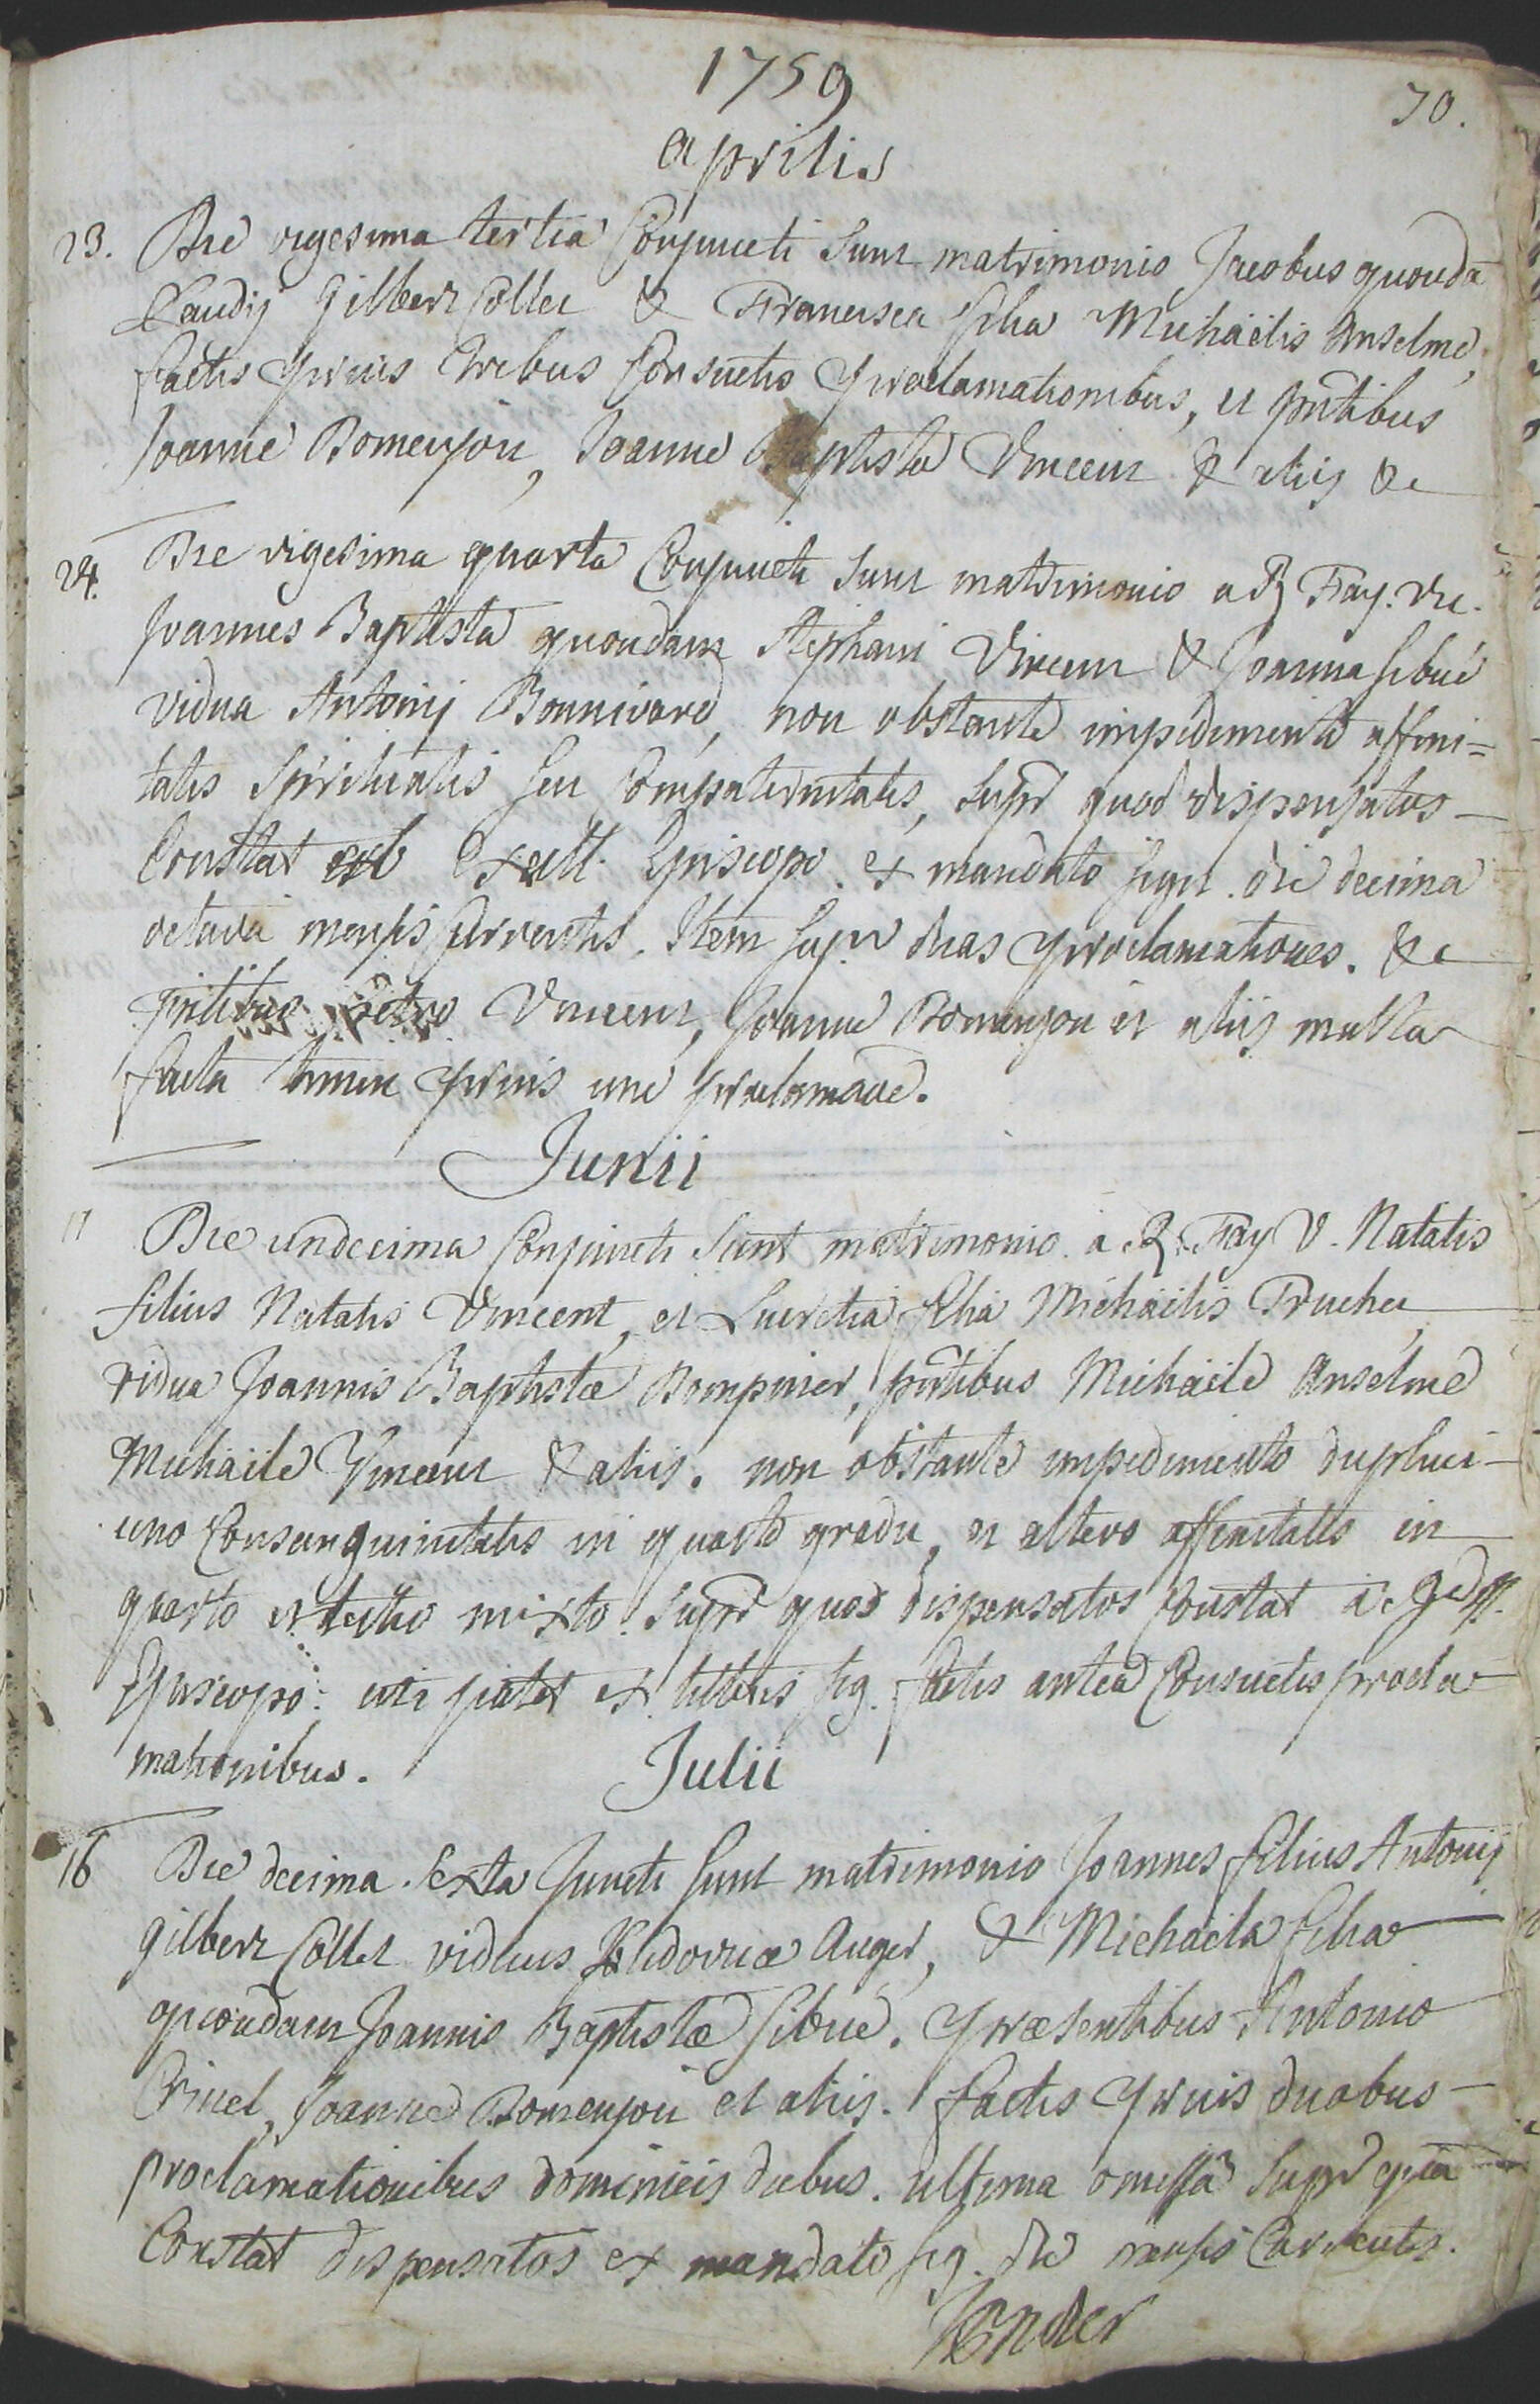 1759
70.
aprilis
23. Die vigesima tertia Conjuncti sunt matrimonio Jacobus quondã
Claudij Gilbert Collet & Francisca filia Michäelis Anselme,
factis prius tribus Consuetis proclamationibus, et pntibus
Joanne Bomenjon, Joanne Baptista Vincent & alijs &c
24. Die vigesima quarta Conjuncti sunt matrimonio a R Fay. Vic.
Joannes Baptista quondam Stephani Vincent & Joanna sibué
vidua Antonij Bonnivard, non obstante impedimento affini=
tatis Spiritualis seu Compaternitatis, supr quod dispensatos
Constat ab Excell. Episcopo. ex mandato sign. die decima
octava mensis Currentis. Item supr duas proclamationes. &c
pntibus petro Vincent, Joanne Bomenjon et alijs multa
facta tamen prius una proclamaõe.
Junii
11 Die undecima Conjuncti sunt matrimonio a R. Fay V. Natalis
filius Natalis Vincent, et Lucretia filia Michäelis Truchet
vidua Joannis Baptistæ Dompnier, pntibus Michäele Anselme
Michäele Vincent & aliis. non obstante impedimento duplici
uno Consanguinitatis in quarto gradu, et altero affinitatis in
quarto et tertio mixto. Supr quos dispensatos Constat a
Episcopo: uti patet ex litteris sig. factis antea Consuetis procla
mationibus.
Julii
16 Die decima sexta Juncti sunt matrimonio Joannes filius Antonij
Gilbert Collet viduus Ludovicæ Auger, & Michaela filia
quondam Joannis Baptistæ sibué. præsentibus Antonio
Crinel, Joanne Bomenjon et aliis. factis prius duabus
proclamationibus dominicis diebus. ultima omissa supr qua
Constat dispensatos ex mandato sig. die mensis Currentis.